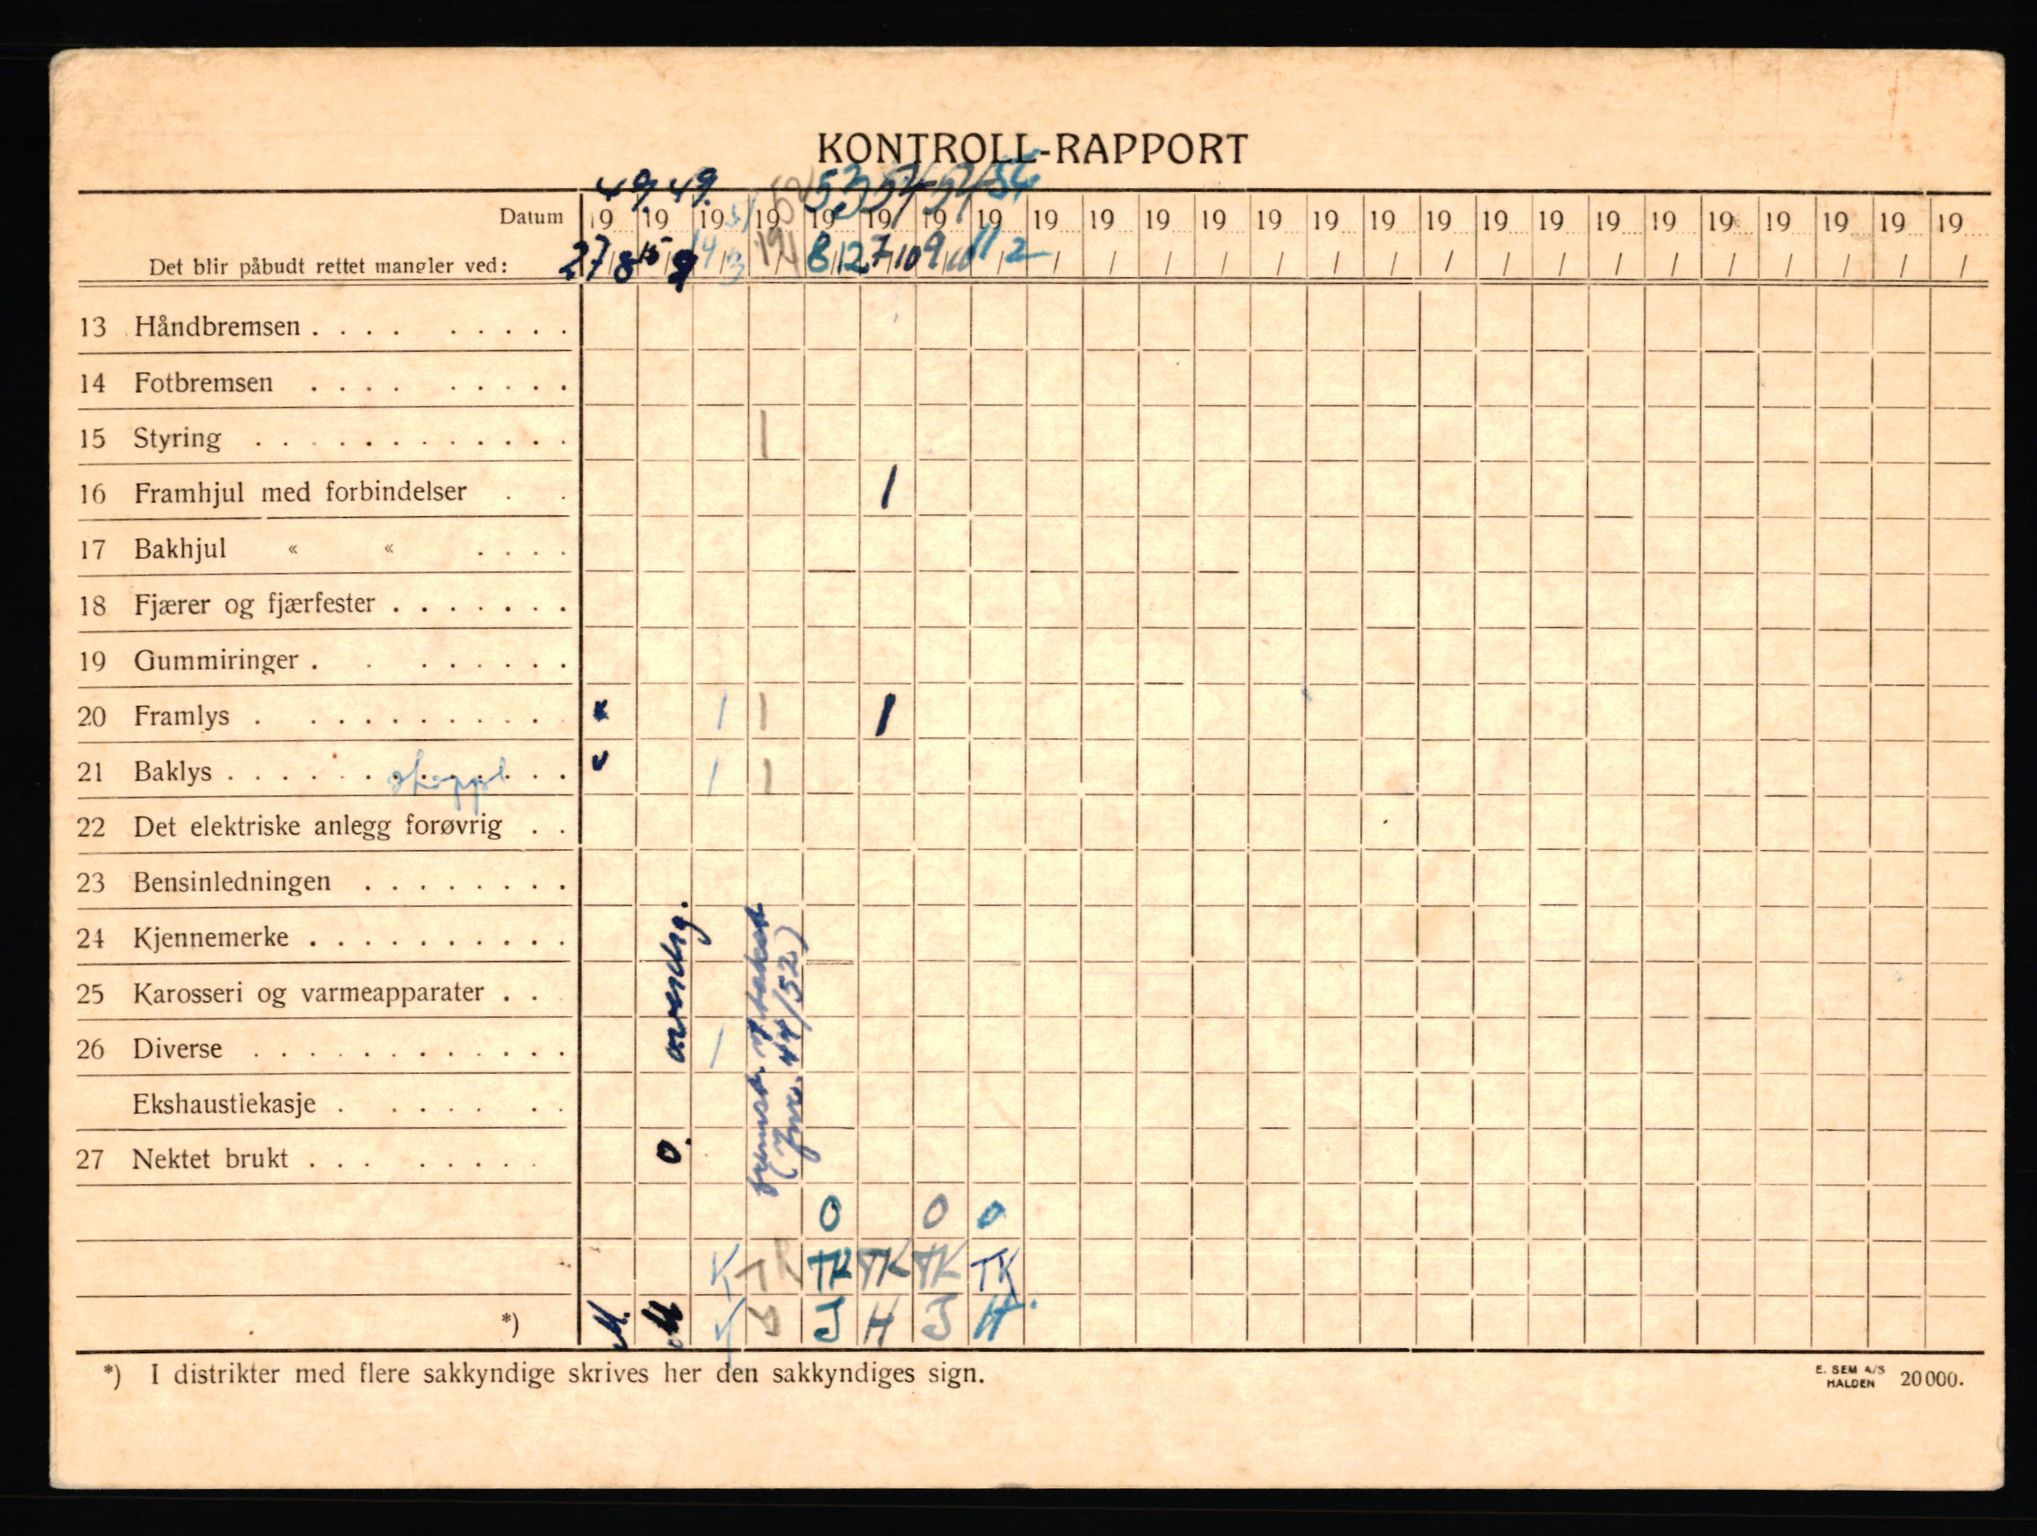 KONTROLL-RAPPORT
49 49. 51 52 53 54 54 56
Datum 19 19 19 19 19 19 19 19 19 19 19 19 19 19 19 19 19 19 19 19 19 19 19 19 19
Det blir påbudt rettet mangler ved: 27/8 15/9 14/3 8/12 7/10 9/10 11/2 / / / / / / / / / / / / / / / / /
13 Håndbremsen
14 Fotbremsen
15 Styring 1
16 Framhjul med forbindelser 1
17 Bakhjul « «
18 Fjærer og fjærfester
19 Gummiringer
20 Framlys x 1 1 1
21 Baklys stoppl v 1 1
22 Det elektriske anlegg forøvrig
23 Bensinledningen
24 Kjennemerke
25 Karosseri og varmeapparater
26 Diverse 1
Ekshaustiekasje
27 Nektet brukt o.
(jnr. 44/52)
O O O
K TR TK TK TK TK
*) J H J H.
*) I distrikter med flere sakkyndige skrives her den sakkyndiges sign.
E. SEM A/S
HALDEN 20000.